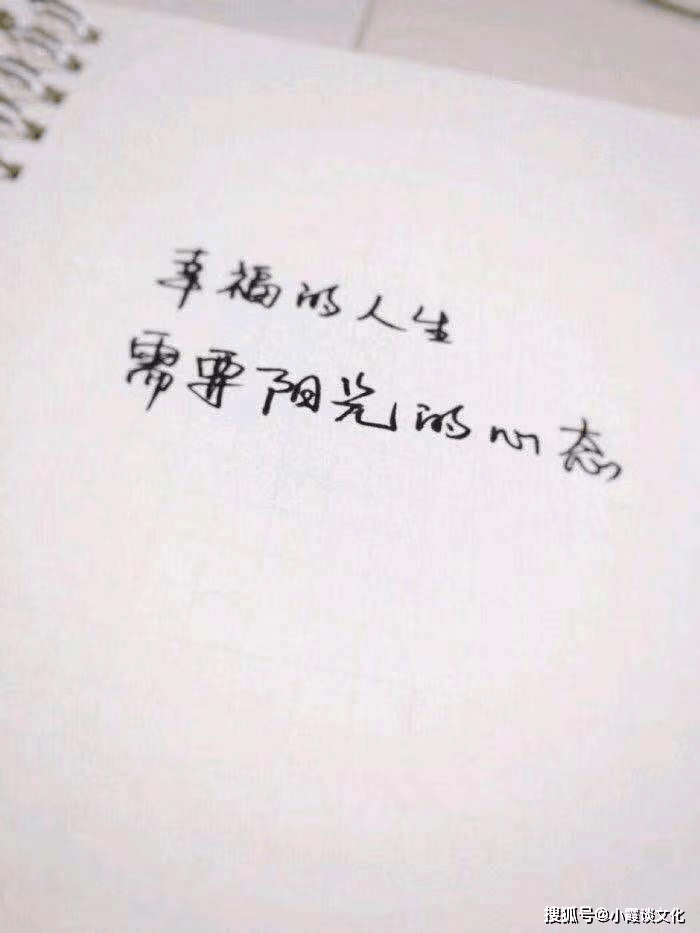 幸福的人生
需要阳光的心态
搜狐号@小霞谈文化